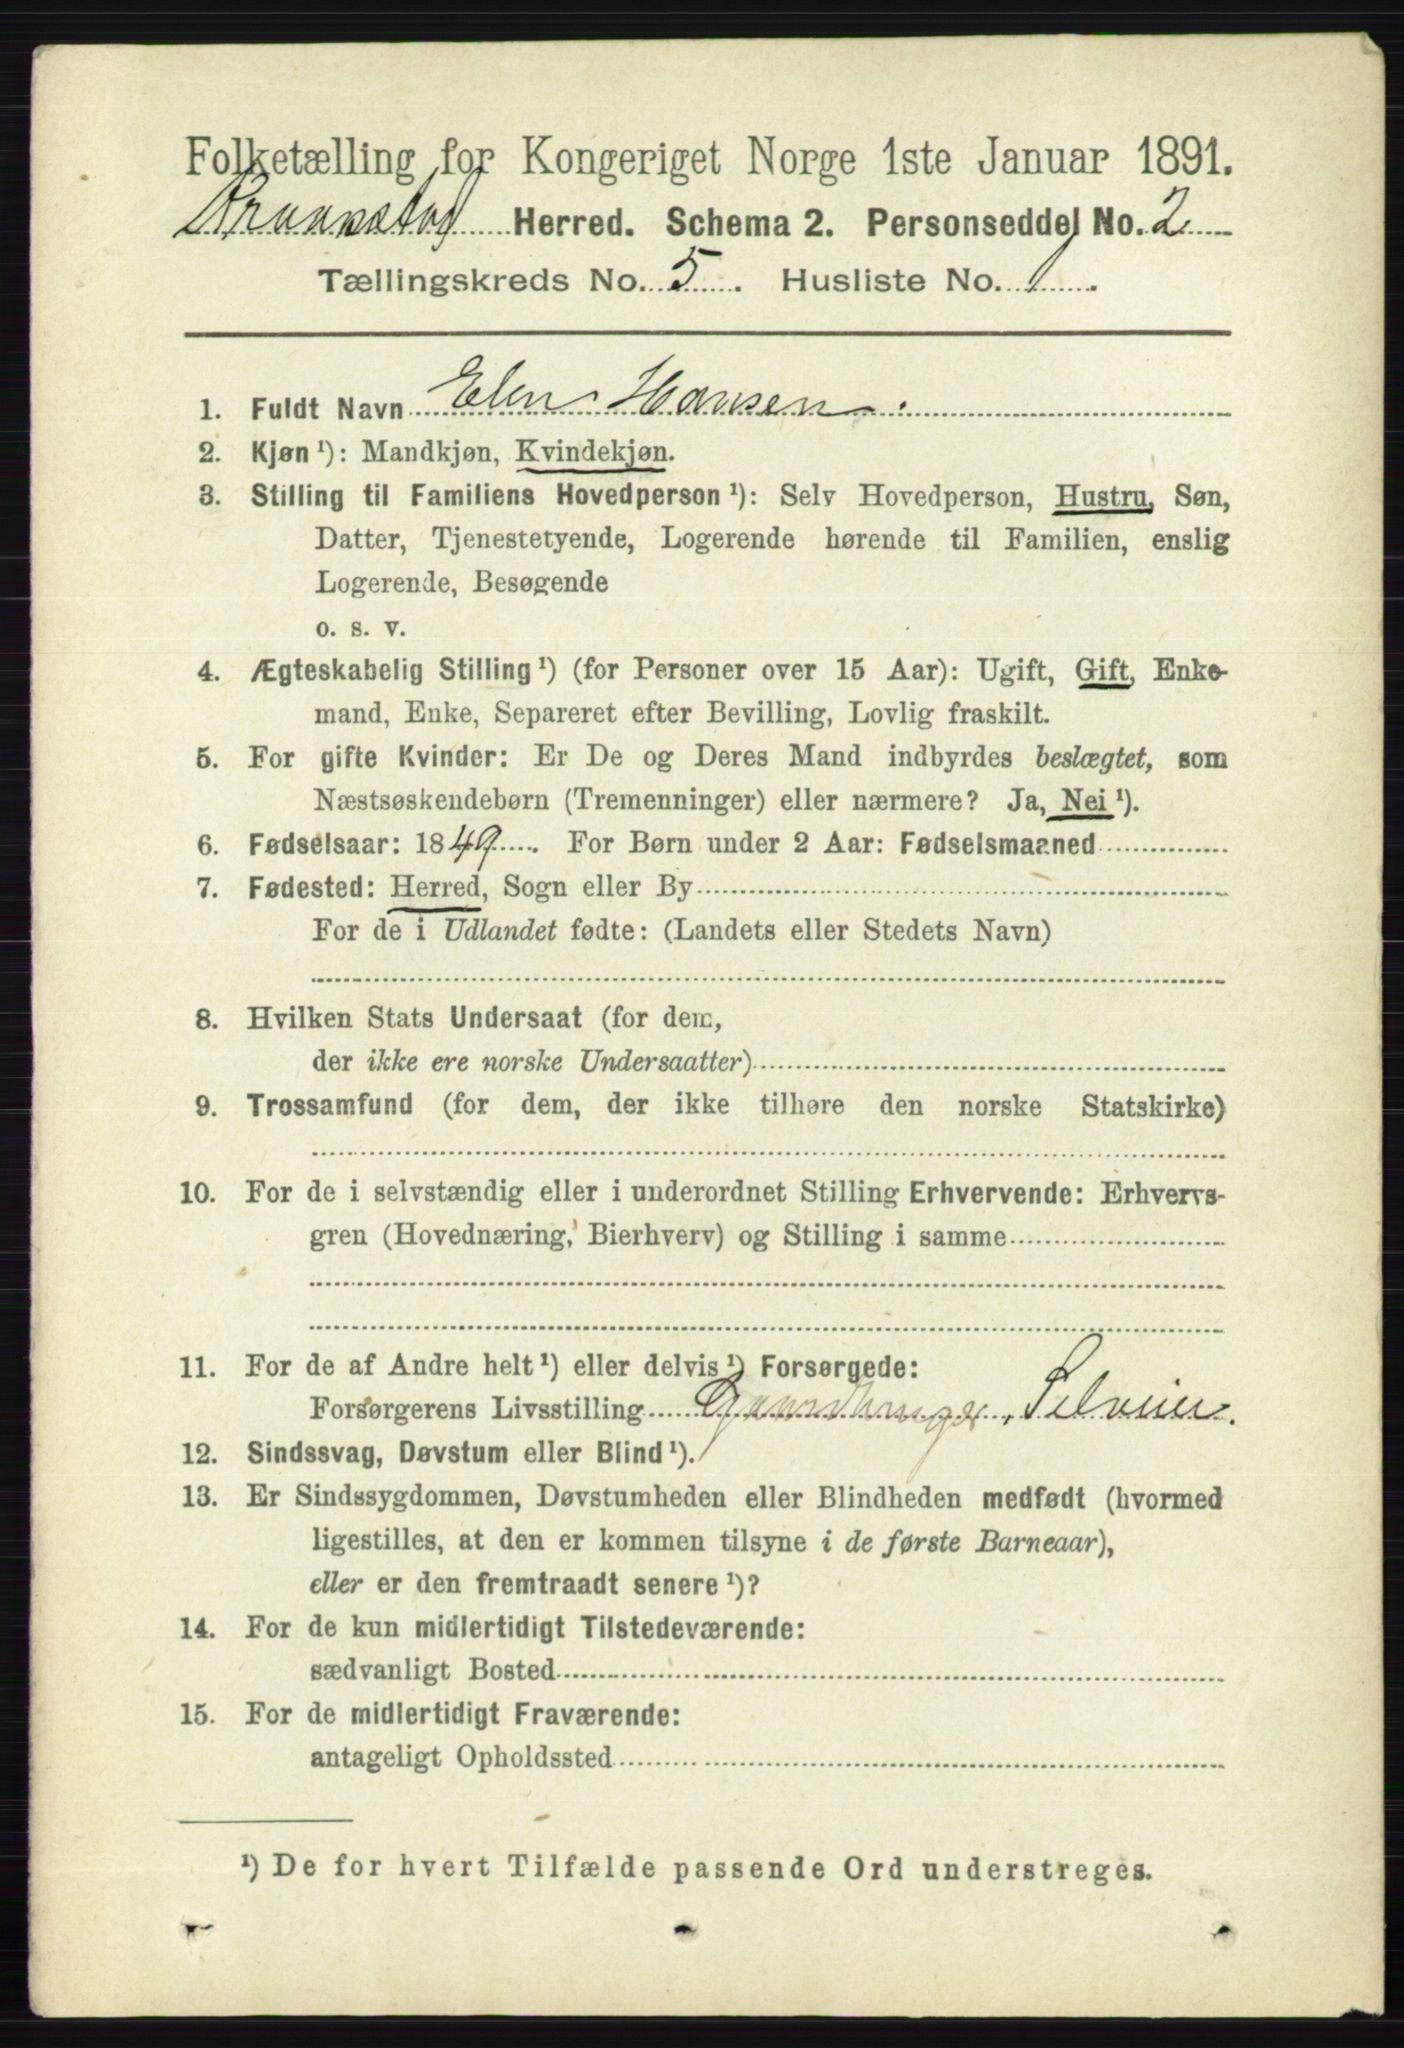 Folketælling for Kongeriget Norge 1ste Januar 1891.
Kraakstad Herred. Schema 2. Personseddel No. 2
Tællingskreds No. 5. Husliste No. 1.
1. Fuldt Navn Elen Hansen.
2. Kjøn ¹): Mandkjøn, Kvindekjøn.
3. Stilling til Familiens Hovedperson ¹): Selv Hovedperson, Hustru, Søn,
Datter, Tjenestetyende, Logerende hørende til Familien, enslig
Logerende, Besøgende
o. s. v.
4. Ægteskabelig Stilling ¹) (for Personer over 15 Aar): Ugift, Gift, Enke-
mand, Enke, Separeret efter Bevilling, Lovlig fraskilt.
5. For gifte Kvinder: Er De og Deres Mand indbyrdes beslægtet, som
Næstsøskendebørn (Tremenninger) eller nærmere? Ja, Nei ¹).
6. Fødselsaar: 1849. For Børn under 2 Aar: Fødselsmaaned
7. Fødested: Herred, Sogn eller By
For de i Udlandet fødte: (Landets eller Stedets Navn)
8. Hvilken Stats Undersaat (for dem,
der ikke ere norske Undersaatter)
9. Trossamfund (for dem, der ikke tilhøre den norske Statskirke)
10. For de i selvstændig eller i underordnet Stilling Erhvervende: Erhvervs-
gren (Hovednæring, Bierhverv) og Stilling i samme
11. For de af Andre helt ¹) eller delvis ¹) Forsørgede:
Forsørgerens Livsstilling Gaardbruger, Selveier.
12. Sindssvag, Døvstum eller Blind ¹).
13. Er Sindssygdommen, Døvstumheden eller Blindheden medfødt (hvormed
ligestilles, at den er kommen tilsyne i de første Barneaar),
eller er den fremtraadt senere ¹)?
14. For de kun midlertidigt Tilstedeværende:
sædvanligt Bosted
15. For de midlertidigt Fraværende:
antageligt Opholdssted
¹) De for hvert Tilfælde passende Ord understreges.